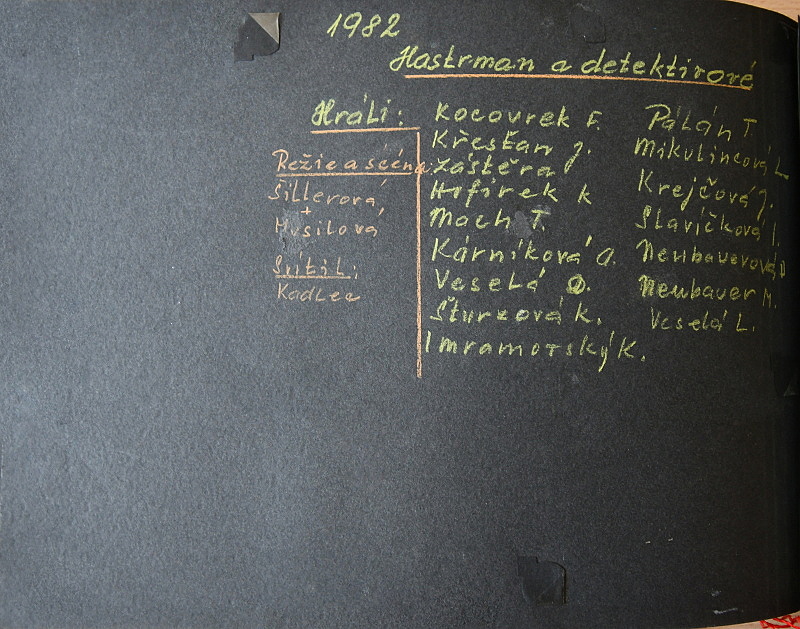 1982
Hastrman a detektivové
Hráli:
Režie a scéna
Šillerová
+
Musilová
Svítil:
Kadlec
Kocourek F.
Křesťan J.
Zástěra
Hofírek K
Mach T.
Kárníková A.
Veselá O.
Šturzová K.
Imramovský K.
Pálán T.
Mikulincová L
Krejčová J.
Slavíčková I.
Neubauerová D
Neubauer M.
Veselá L.